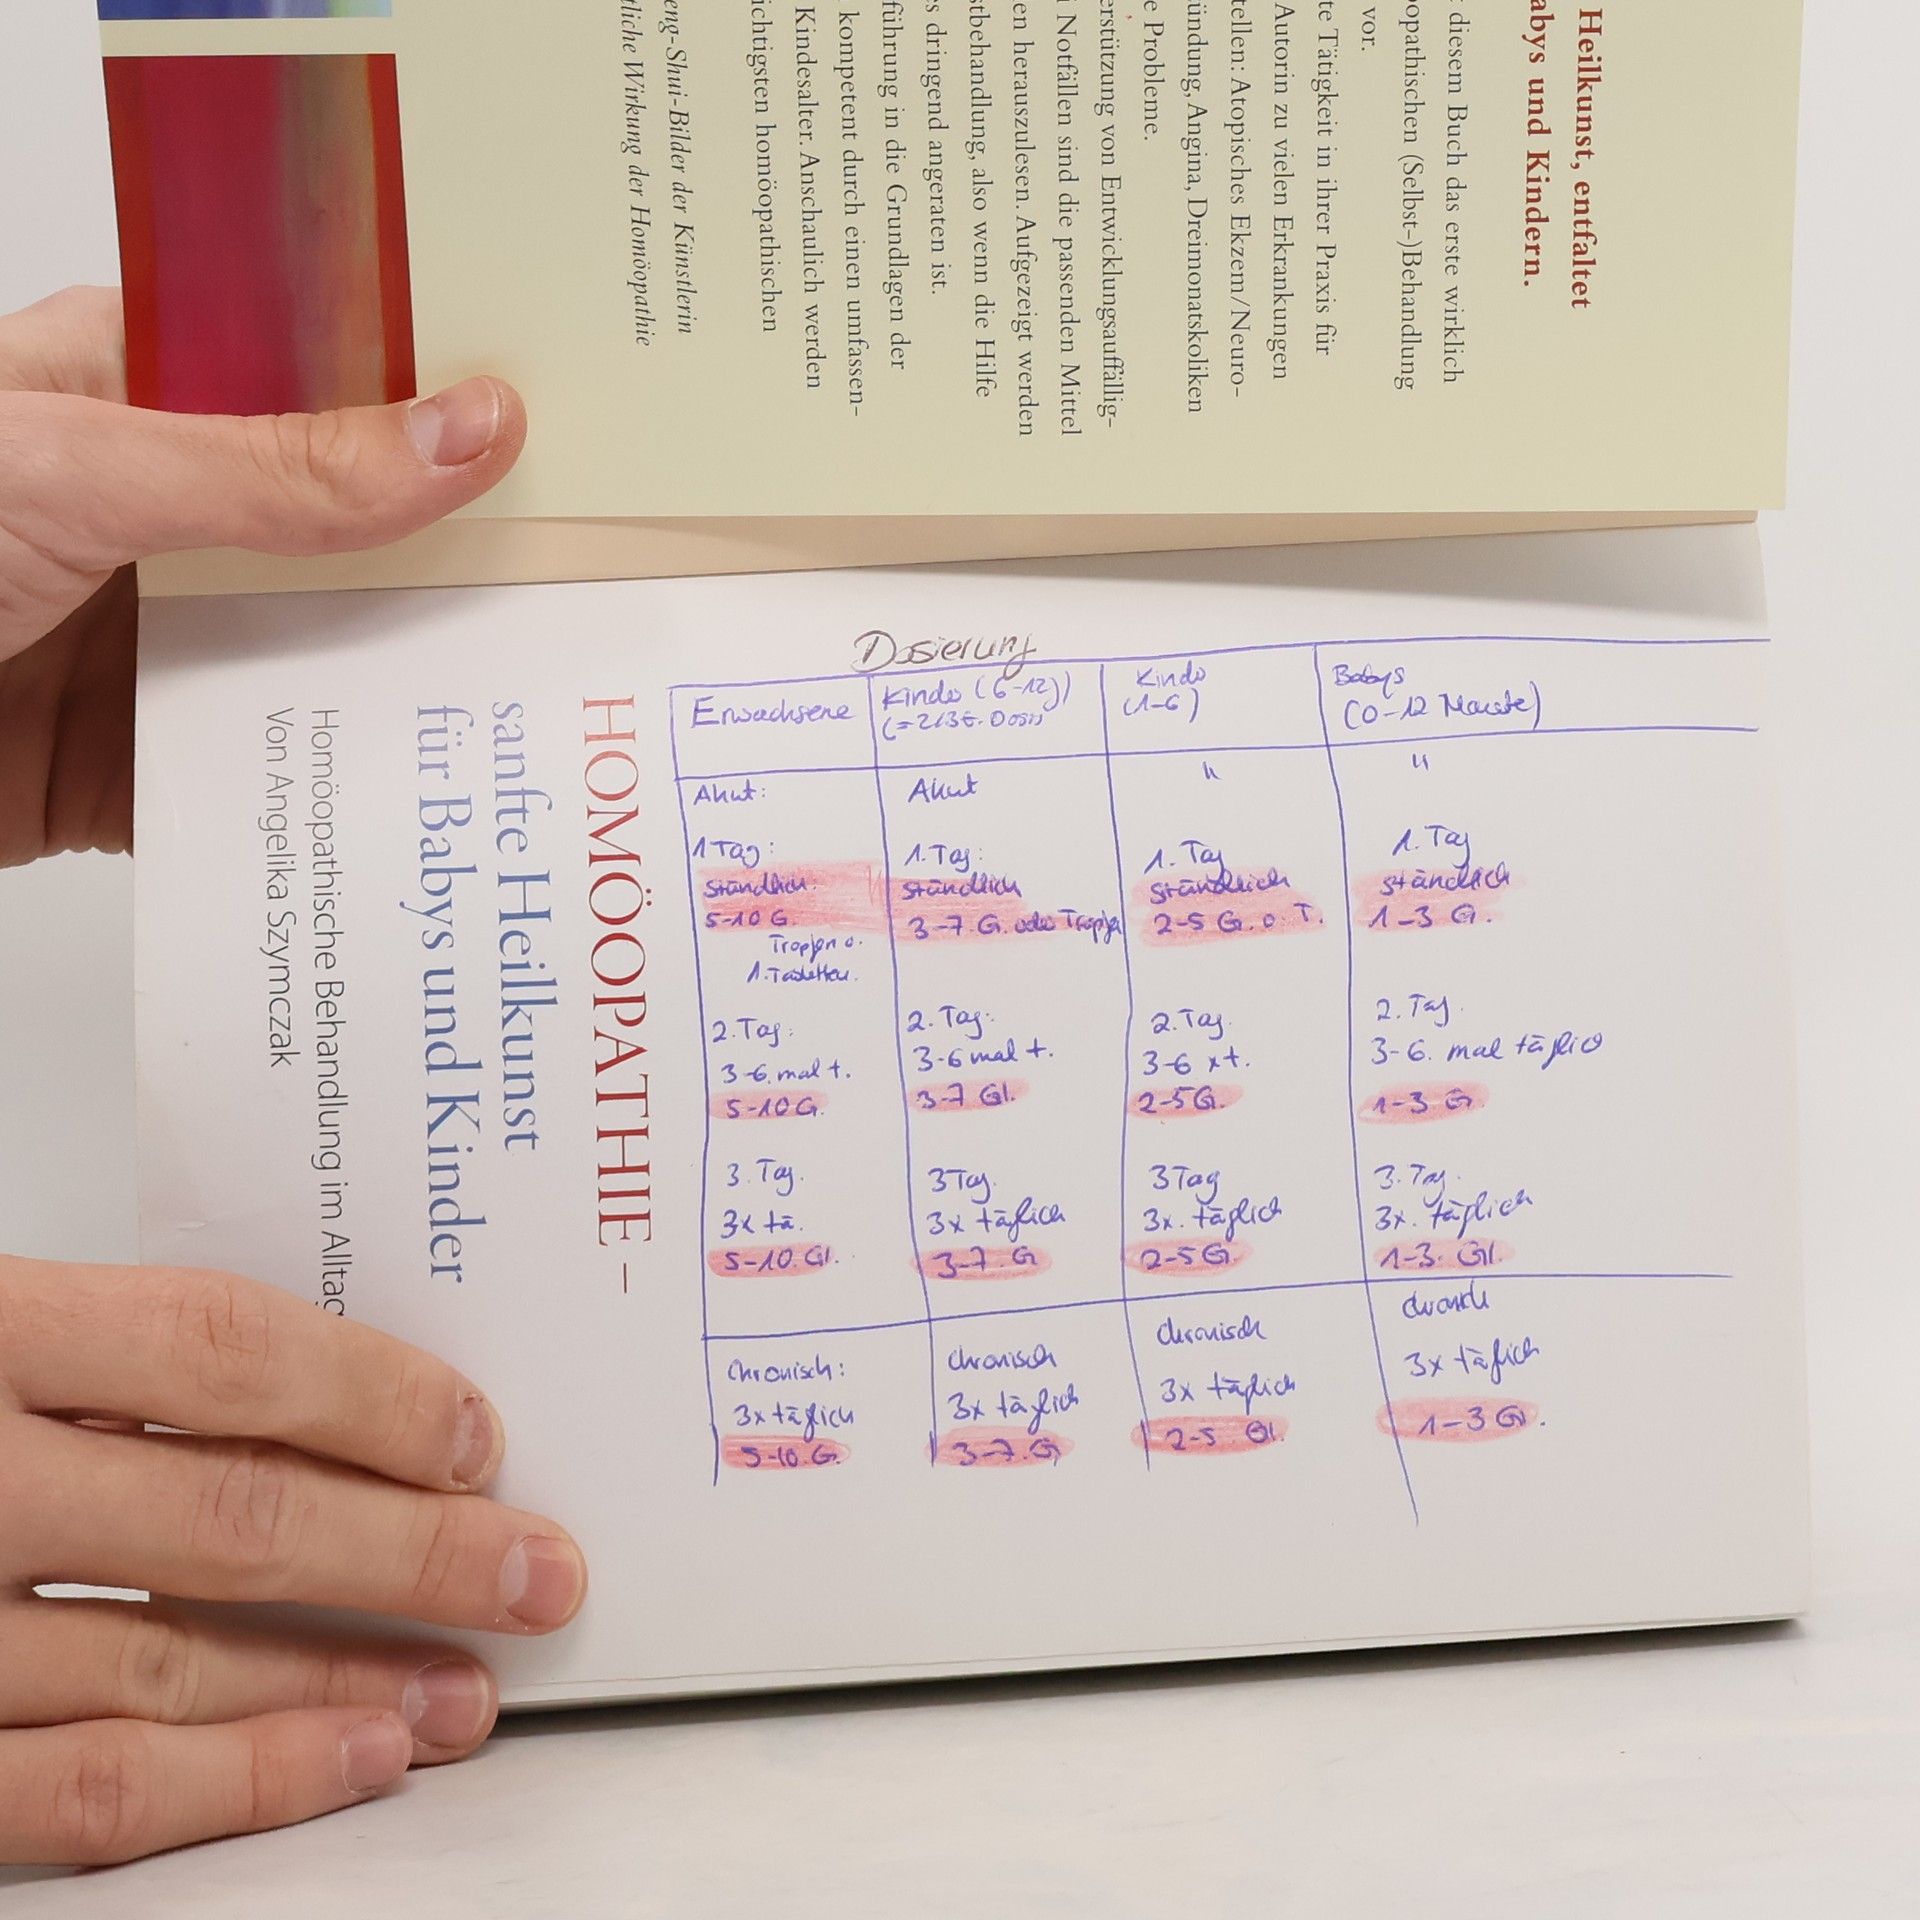 Heilkunst, entfaltet
abys und Kindern.
diesem Buch das erste wirklich
opathischen (Selbst-)Behandlung
vor.
te Tätigkeit in ihrer Praxis für
Autorin zu vielen Erkrankungen
tellen: Atopisches Ekzem/Neuro-
ündung, Angina, Dreimonatskoliken
e Probleme.
erstützung von Entwicklungsauffällig-
i Notfällen sind die passenden Mittel
en herauszulesen. Aufgezeigt werden
stbehandlung, also wenn die Hilfe
s dringend angeraten ist.
führung in die Grundlagen der
kompetent durch einen umfassen-
Kindesalter. Anschaulich werden
ichtigsten homöopathischen
eng-Shui-Bilder der Künstlerin
tliche Wirkung der Homöopathie
HOMÖOPATHIE –
sanfte Heilkunst
für Babys und Kinder
Homöopathische Behandlung im Alltag
Von Angelika Szymczak
Dosierung
Erwachsene
Akut:
1 Tag:
stündlich:
5-10 G.
Tropfen o.
1. Tabletten.
2. Tag:
3-6. mal t.
5-10 G.
3. Tag.
3x tä.
5-10. Gl.
Chronisch:
3x täglich
5-10. G.
Kinder (6-12j)
(= 2/3 E. Dosis
Akut
1. Tag:
stündlich
3-7. G. oder Tropfen
2. Tag:
3-6 mal t.
3-7 Gl.
3 Tag.
3x täglich
3-7. G
chronisch
3x täglich
3-7. G
Kinder
(1-6)
"
1. Tag
stündlich
2-5 G. o. T.
2. Tag.
3-6 x t.
2-5 G.
3 Tag
3x. täglich
2-5 G.
chronisch
3x täglich
2-5. Gl.
Babys
(0-12 Monate)
"
1. Tag
stündlich
1-3 G.
2. Tag.
3-6. mal täglich
1-3 G
3. Tag.
3x. täglich
1-3. Gl.
chronisch
3x täglich
1-3 Gl.